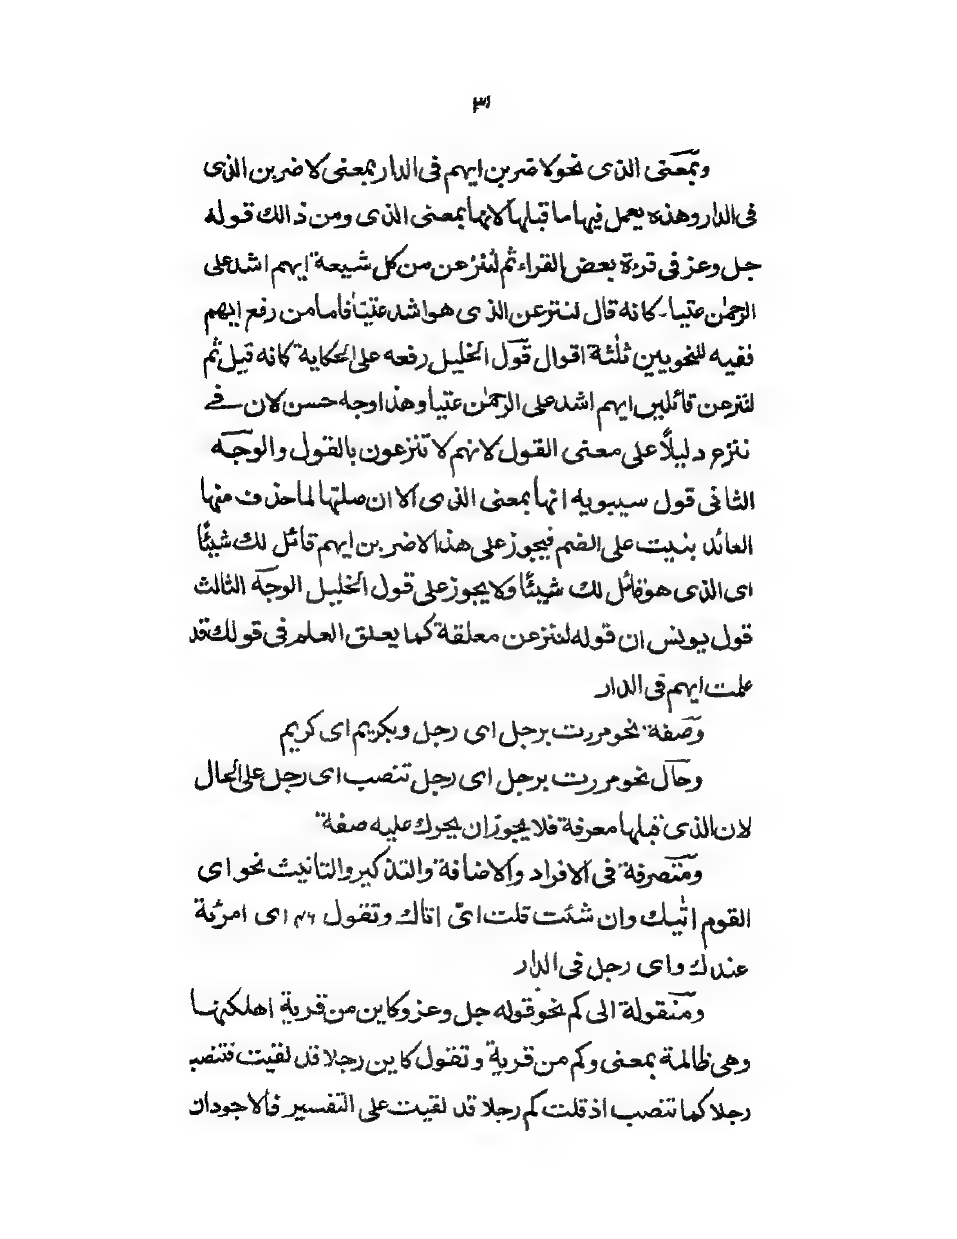 ٣١
وبمعنى الذى نحو لاضربن ايهم فى الدار بمعنى لاضربن الذى
فى الدار وهذه يعمل فيها ما قبلها لانها بمعنى الذى ومن ذالك قوله
جل وعز فى قرءة بعض القراء ثم لننزعن من كل شيعة ايهم اشد على
الرحمٰن عتيا - كانه قال لننزعن الذى هو اشد عتيّا فاما من رفع ايهم
ففيه للنحويين ثلٰثة اقوال قول الخليل رفعه على الحكاية كانه قيل ثم
لننزعن قائلين ايهم اشد على الرحمٰن عتيا وهذا وجه حسن لان فے
ننزع دليلاً على معنى القول لانهم لا تنزعون بالقول والوجه
الثانى قول سيبويه انها بمعنى الذى الا ان صلتها لما حذف منها
العائد بنيت على الضم فيجوز على هذا لاضربن ايهم قائل لك شيئًا
اى الذى هو قائل لك شيئًا ولا يجوز على قول الخليل الوجه الثالث
قول يونس ان قوله لننزعن معلقة كما يعلق العلم فى قولك قد
علمت ايهم فى الدار
وصفة نحو مررت برجل اى رجل وبكريم اى كريم
وحال نحو مررت برجل اى رجل تنصب اى رجل على الحال
لان الذى قبلها معرفة فلا يجوز ان يجرك عليه صفة
ومتصرفة فى الافراد والاضافة والتذكير والتانيث نحو اى
القوم اتٰيك وان شئت قلت اىّ اتاك وتقول اى امرئة
عندك واى رجل فى الدار
ومنقولة الى كم نحو قوله جل وعز وكاين من قرية اهلكنها
وهى ظالمة بمعنى وكم من قرية وتقول كاين رجلا قد لقيت فتنصب
رجلا كما تنصب اذ قلت كم رجلا قد لقيت على التفسير فالاجودان